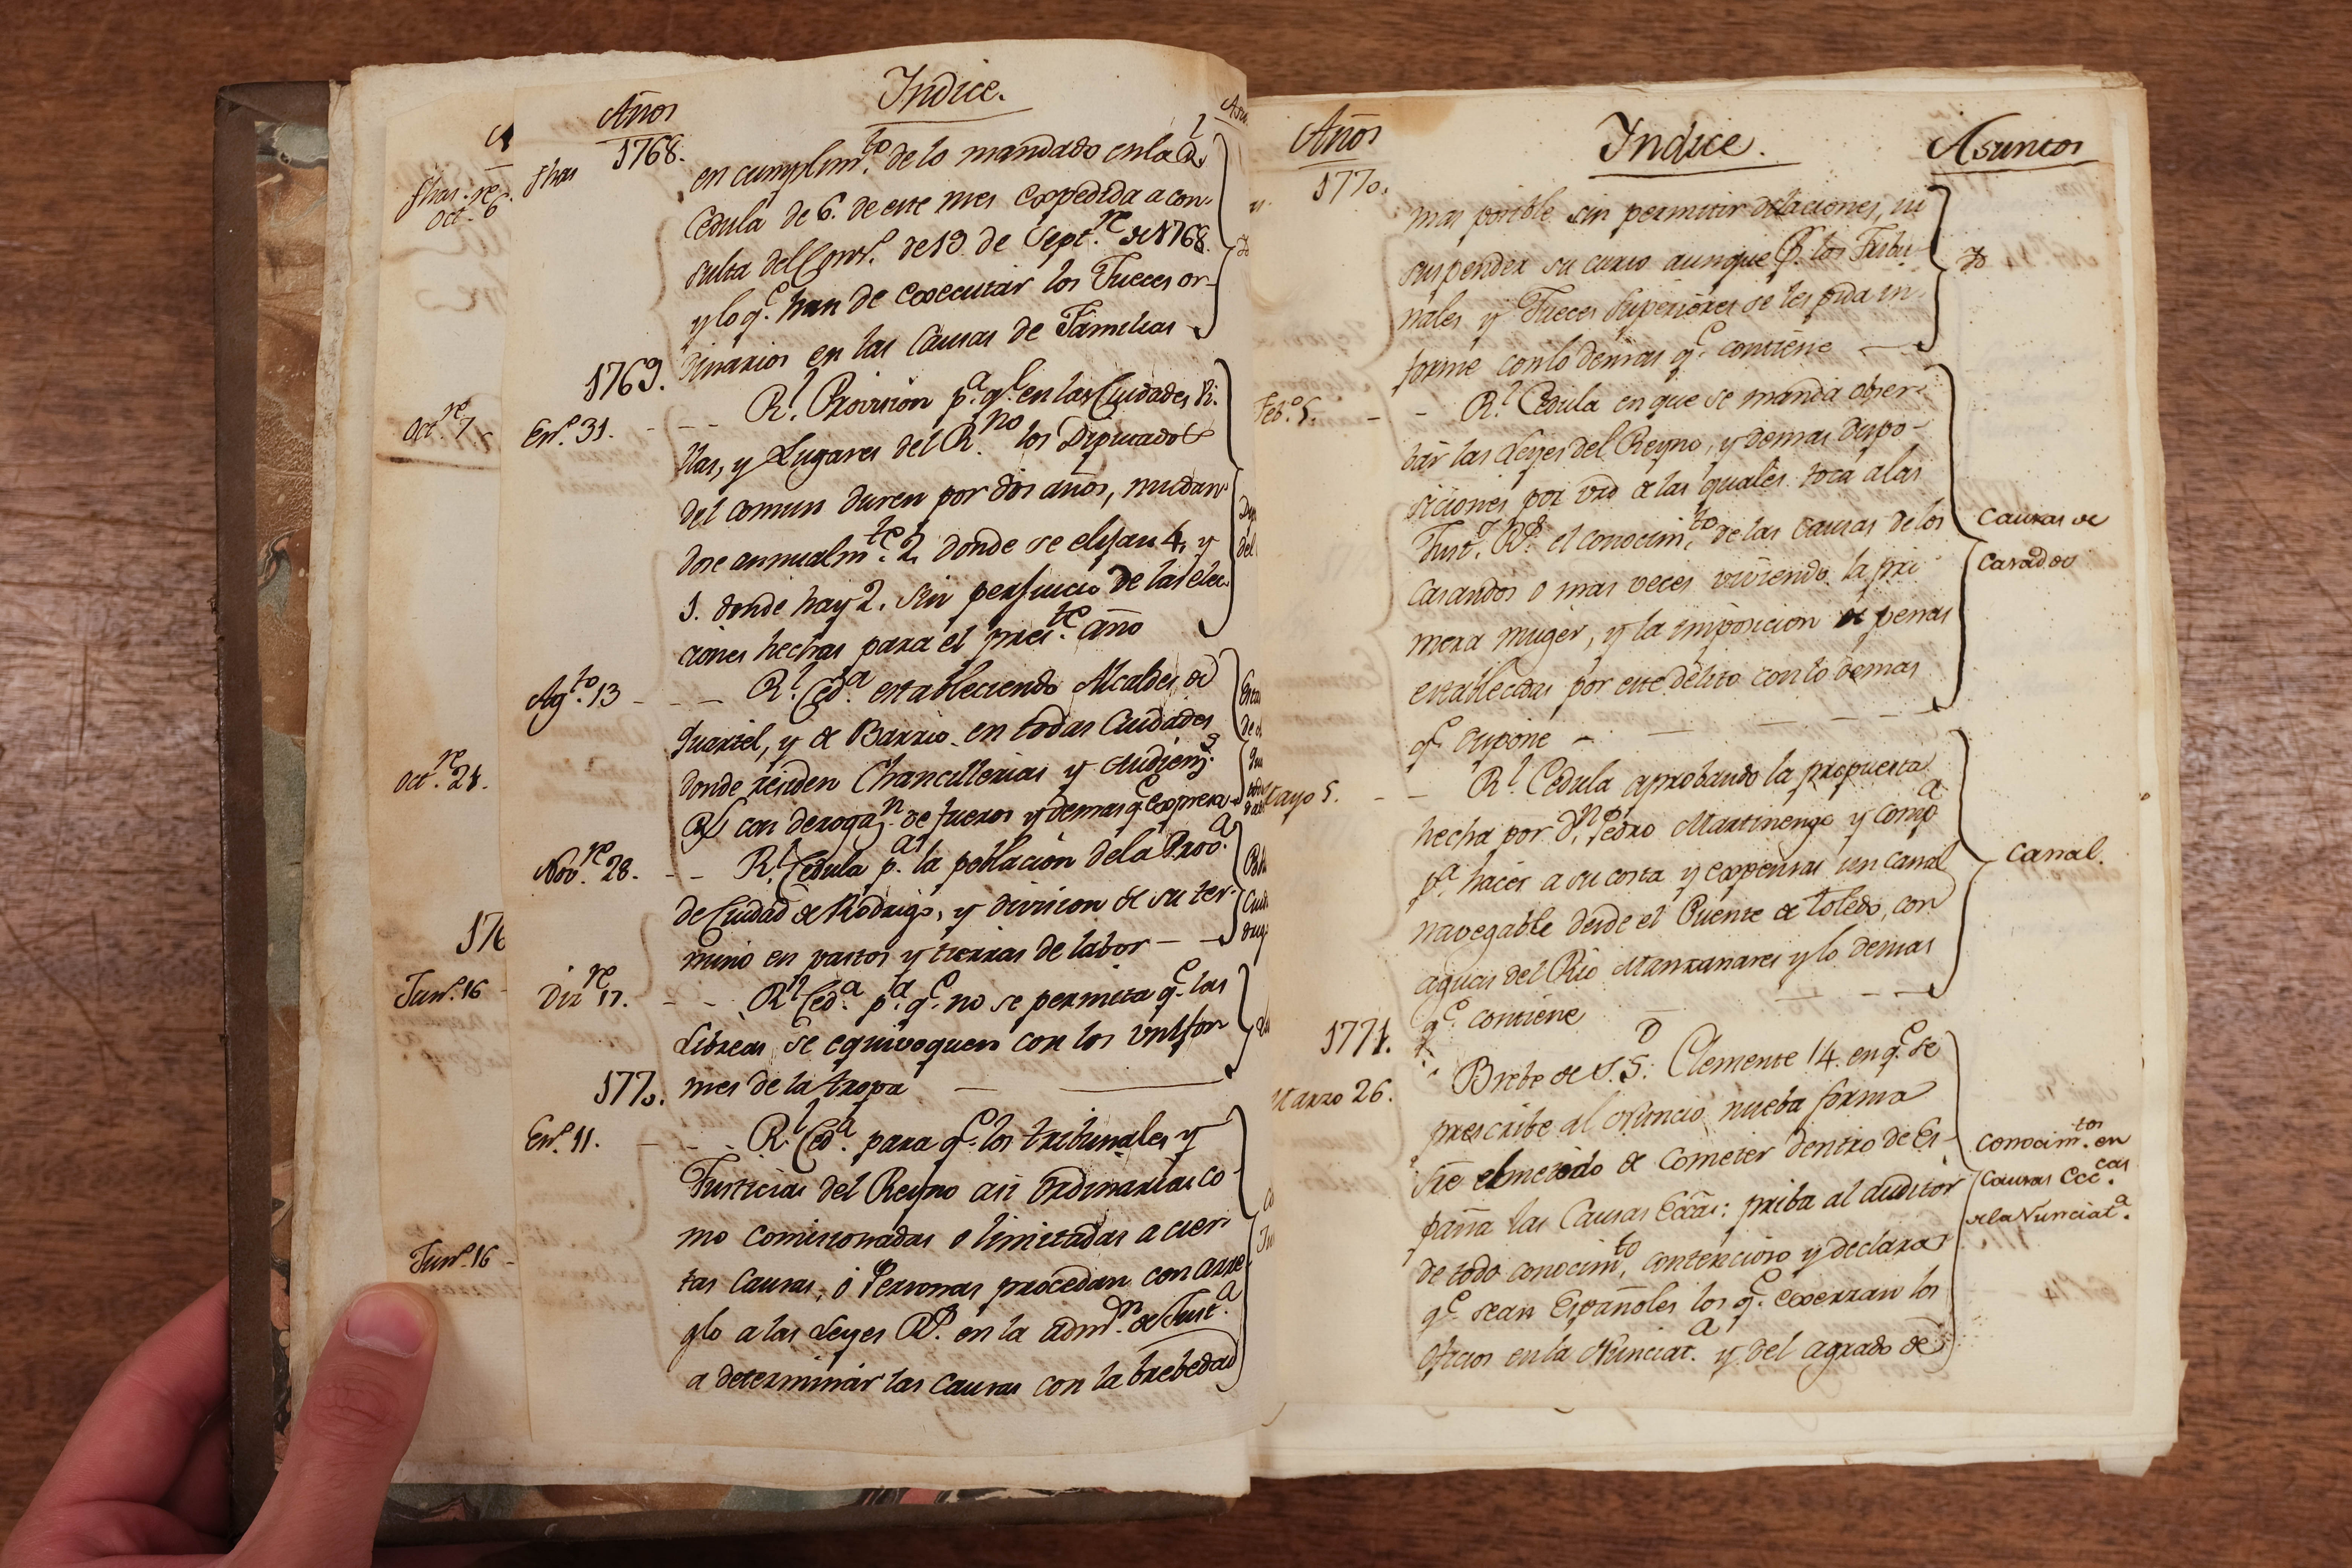 Años
Indice.
shas
1768.
en cumplim.to de lo mandado en la R.l
Cedula de 6. de este mes expedida a con-
sulta del Cons.º de 19 de Sept.re de 1768.
y lo q.e han de executar los Jueces or-
dinarios en las Causas de Familias
1769.
En.º 31. - - - R.l Provision p.a q.e en las Ciudades Vi-
llas, y Lugares del R.no los Diputados
del comun duren por dos años, mudan-
dose annualm.te 2 donde se elijan 4, y
1. donde hay 2. sin perjuicio de las elec-
ciones hechas para el pres.te año
Ag.to 13 - - - R.l Ced.a estableciendo Alcaldes de
Quartel, y de Barrio en todas Ciudades
donde residen Chancillerias y Audienz.s
R.s con derogaz.n de fueros y demas q.e expresa
Nov.re 28. - - R.l Cedula p.a la poblacion de la Prov.a
de Ciudad de Rodrigo, y division de su ter-
mino en pastos y tierras de labor - -
Diz.re 17. - - R.l Ced.a p.a q.e no se permita q.e las
Libreas se equivoquen con los Unifor
mes de la tropa
1770.
En.º 11. - - - R.l Ced.a para q.e los tribunales y
Justicias del Reyno asi ordinarias co-
mo comisionadas o limitadas a cier-
tas Causas, ó Personas procedan con arre
glo a las Leyes R.s en la adm.n de Just.a
a determinar las causas con la brebedad
shas. re
Oct.6
Oct.re 7
Oct.re 24.
176
Jun.º 16
Jun.º 16 -
Años
Indice.
Asuntos
1770.
mas posible sin permitir dilaciones, ni
suspender su curso aunque p.r los Tribu-
nales y Jueces Superiores se les pida in-
forme con lo demas q.e contiene
Feb.º 5. - - R.l Cedula en que se manda obser-
bar las Leyes del Reyno, y demas dispo-
siciones por vrd de las quales toca a las
Just.s R.s el conocim.to de las causas de los
Casandos o mas veces viviendo la pri
mera muger, y la imposicion de penas
establecidas por este delito con lo demas
q.e supone - - - - -
Causas de
Casados
Mayo 5. - - R.l Cedula aprobando la propuesta
hecha por D.n Pedro Martinengo y Comp.a
p.a hacer a su costa y expensas un canal
navegable desde el Puente de Toledo, con
aguas del Rio Manzanares y lo demas
q.e contiene
Canal.
1771.
Marzo 26. Brebe de S.S. Clemente 14. en q.e se
prescribe al Nuncio nueba forma
sre el metodo de cometer dentro de Es-
paña las Causas Eccâs: priba al Auditor
de todo conocim.to contencioso y declara
q.e sean Españoles los q.e exerzan los
oficios en la Nunciat.a y del agrado de
Conocim.tos en
Causas Ecc.cas
de la Nunciat.a